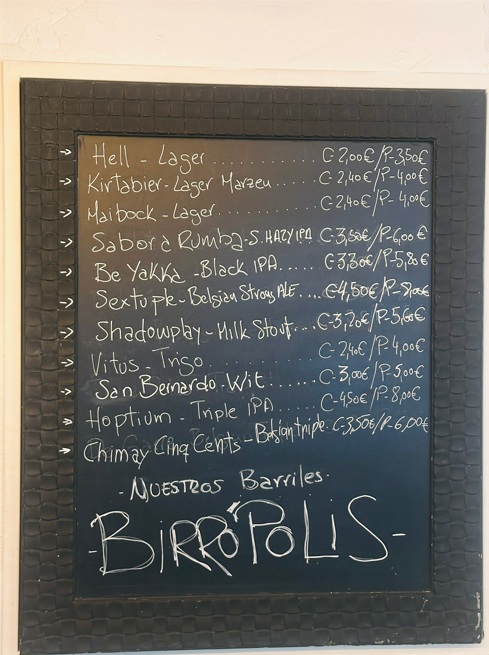 → Hell - Lager .......... C-2,00€/P-3,50€
→ Kirtabier - Lager Marzeu ..... C-2,40€/P-4,00€
→ Maibock - Lager .......... C-2,40€/P-4,00€
→ Sabor a Rumba - S. HAZY IPA C-3,50€/P-6,00€
→ Be Yakka - Black IPA ..... C-3,30€/P-5,80€
→ Sextuple - Belgian Strong ALE ... C-4,50€/P-8,00€
→ Shadowplay - Milk Stout ... C-3,20€/P-5,60€
→ Vitus - Trigo .......... C-2,40€/P-4,00€
→ San Bernardo - Wit ...... C-3,00€/P-5,00€
→ Hoptium - Triple IPA C-4,50€/P-8,00€
→ Chimay Cinq Cents - Belgian triple. C-3,50€/P-6,00€
- Nuestros Barriles -
- BIRRÓPOLIS -